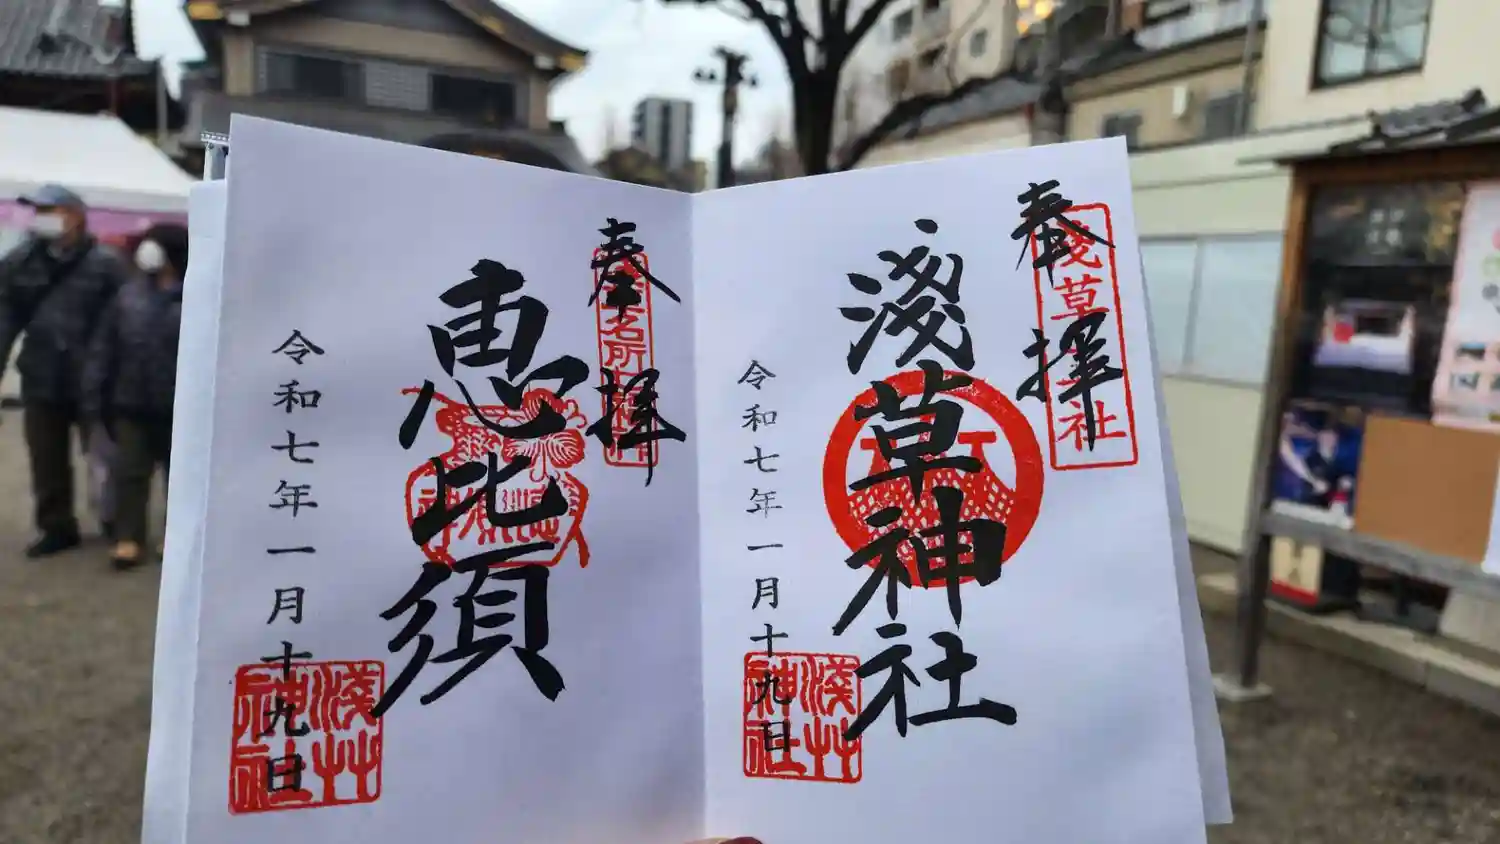 奉拝
淺草神社
淺草神社
令和七年一月十九日
淺草神社
奉拝
恵比須
令和七年一月十九日
淺草神社